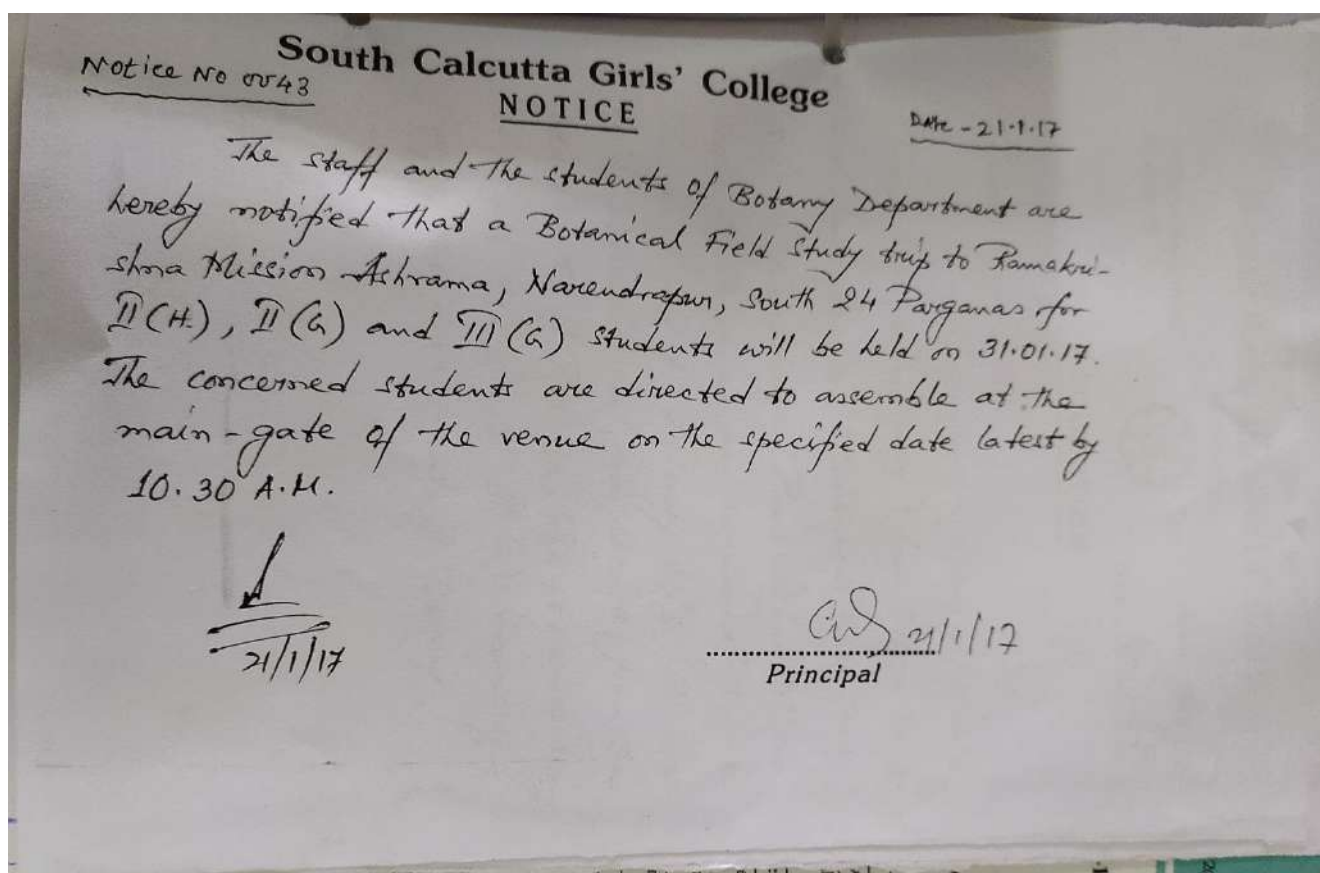 South Calcutta Girls' College
Notice No 0043
NOTICE
Date - 21.1.17
The staff and the students of Botany Department are
hereby notified that a Botanical Field Study trip to Ramakri-
shna Mission Ashrama, Narendrapur, South 24 Parganas for
II (H.), II (G) and III (G) students will be held on 31.01.17.
The concerned students are directed to assemble at the
main-gate of the venue on the specified date latest by
10.30 A.M.
21/1/17
21/1/17
Principal